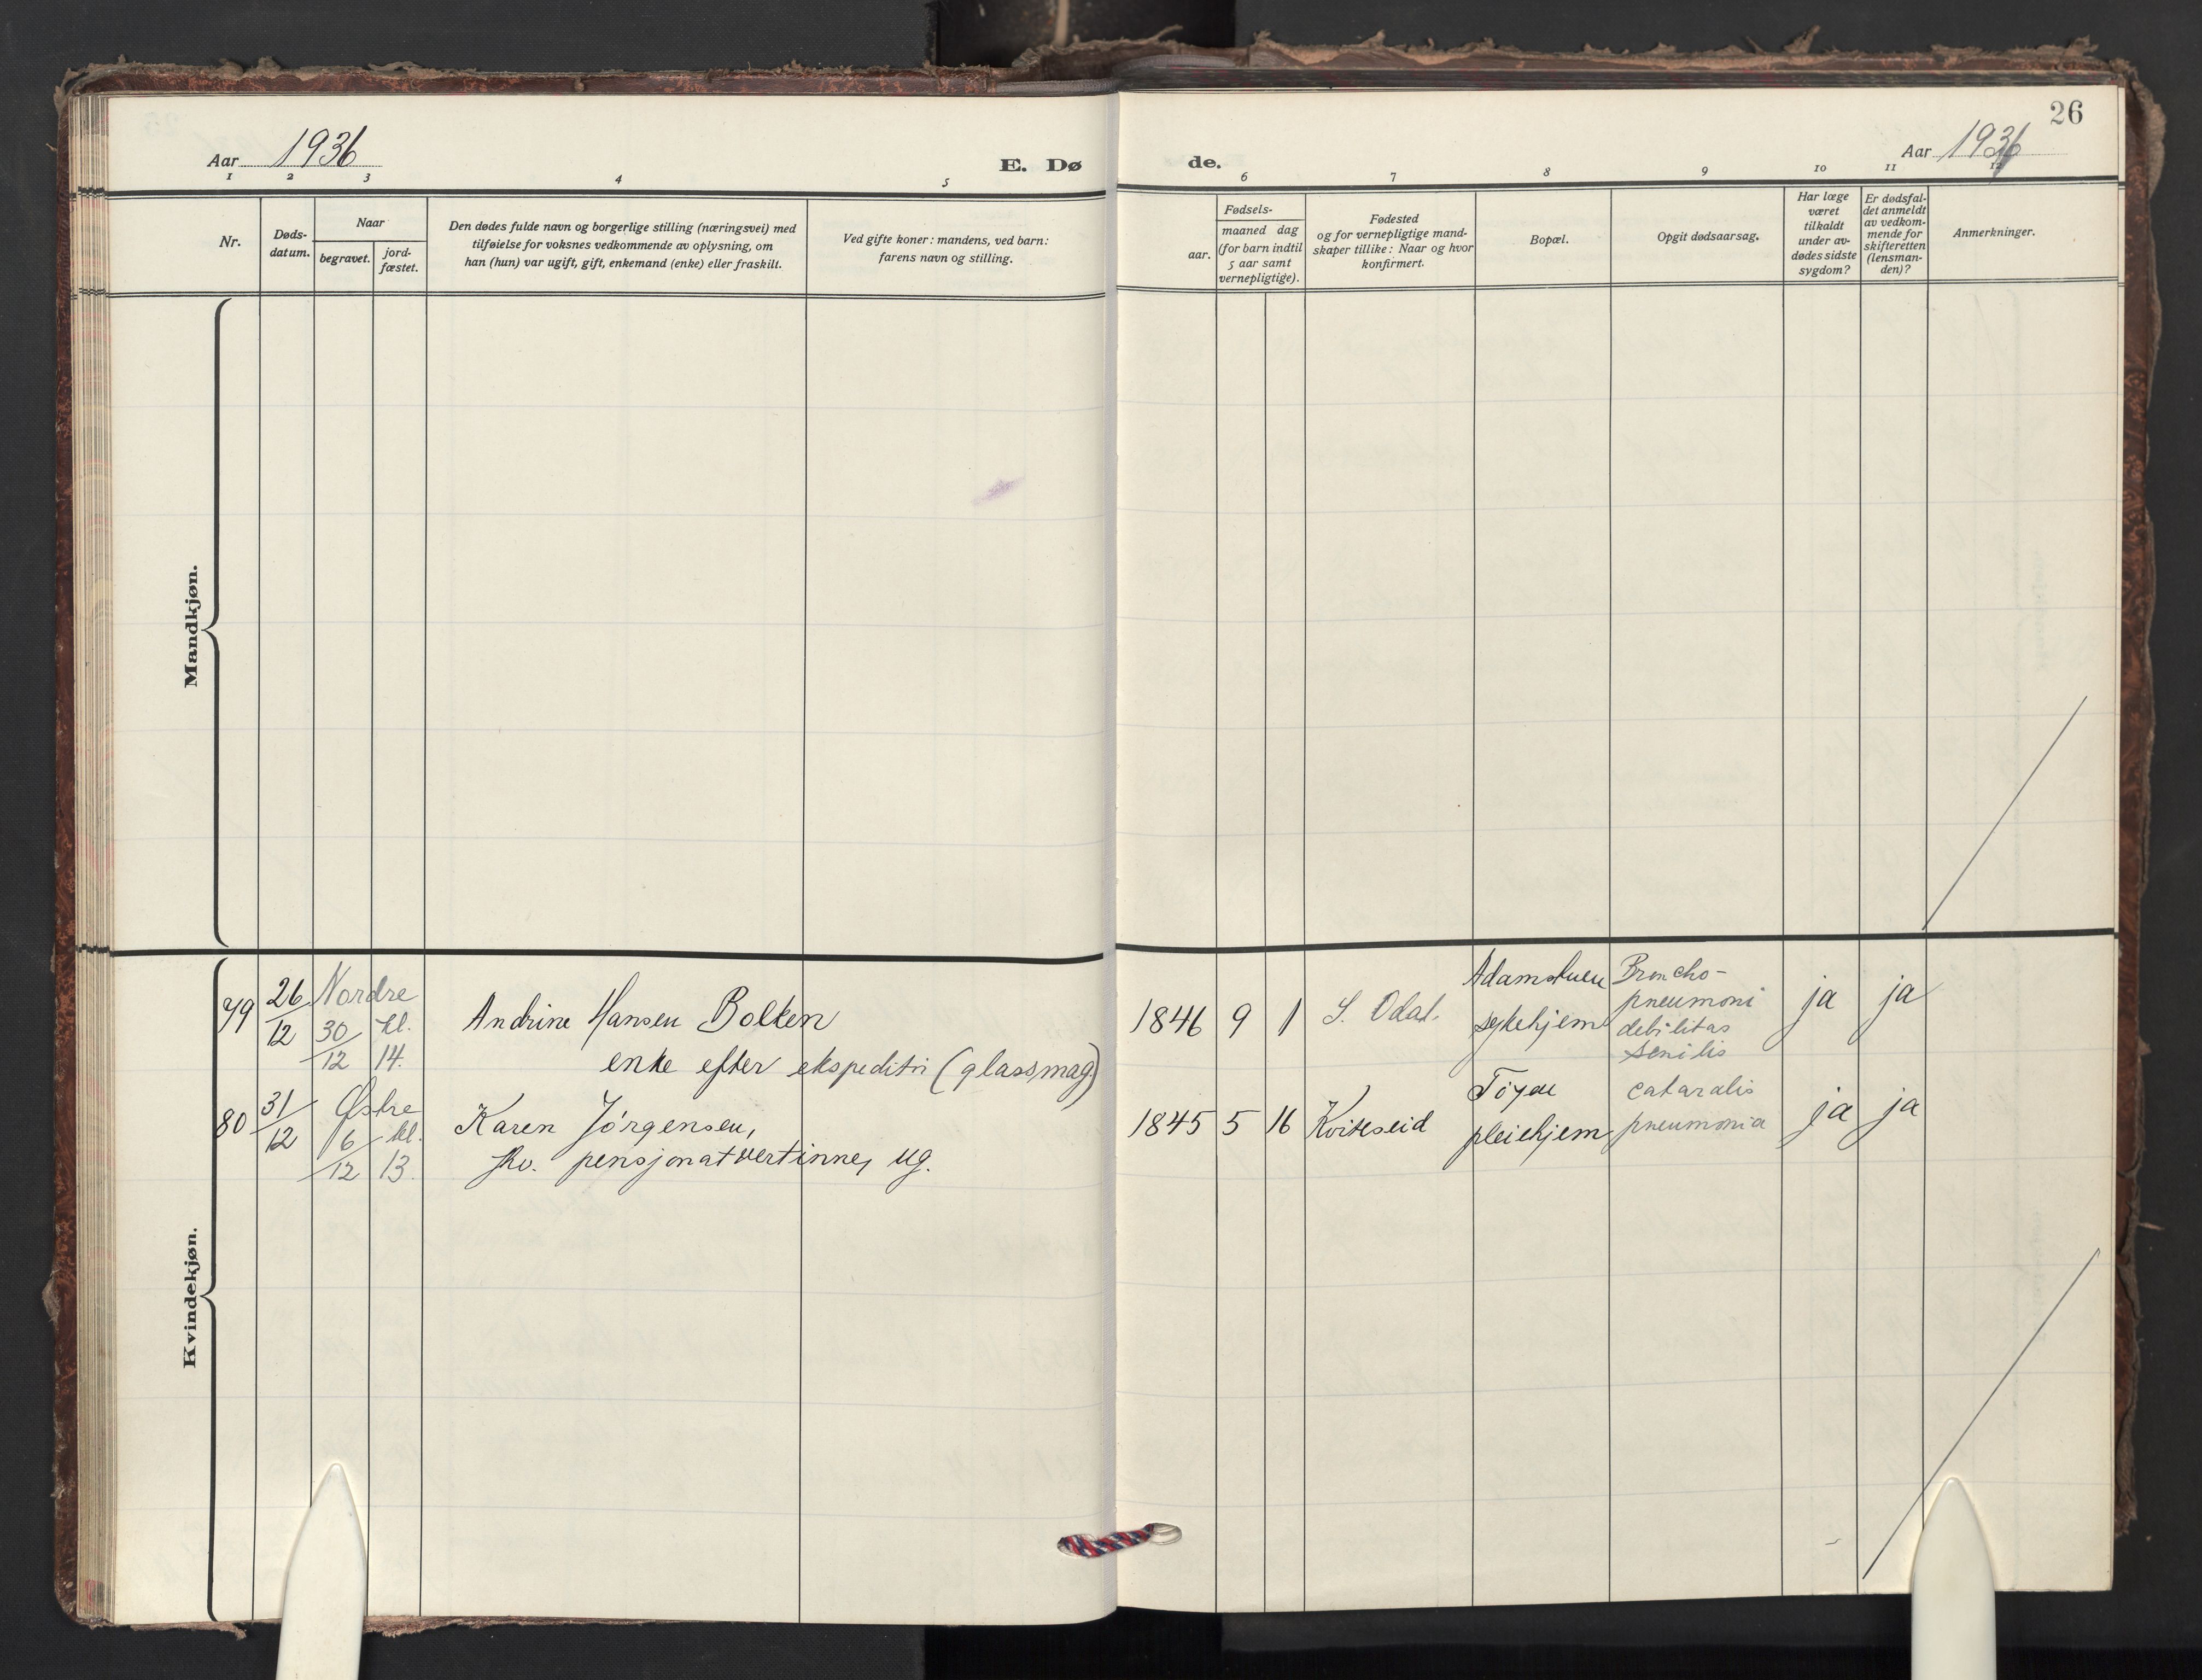 26
Aar 1936
E. Dø
de.
Aar 1936
1 2 3 4 5 6 7 8 9 10 11 12
Nr.
Døds-
datum.
Naar
begravet.
jord-
fæstet.
Den dødes fulde navn og borgerlige stilling (næringsvei) med
tilføielse for voksnes vedkommende av oplysning, om
han (hun) var ugift, gift, enkemand (enke) eller fraskilt.
Ved gifte koner: mandens, ved barn:
farens navn og stilling.
Fødsels-
aar.
maaned dag
(for barn indtil
5 aar samt
vernepligtige).
Fødested
og for vernepligtige mand-
skaper tillike: Naar og hvor
konfirmert.
Bopæl.
Opgit dødsaarsag.
Har læge
været
tilkaldt
under av-
dødes sidste
sygdom?
Er dødsfal-
det anmeldt
av vedkom-
mende for
skifteretten
(lensman-
den)?
Anmerkninger.
Mandkjøn.
Kvindekjøn.
79
26/12
Nordre
30/12
kl.
14.
Andrine Hansen Bolken
enke efter ekspeditri (glassmag)
1846 9 1
S. Odal.
Adamstuen
sykehjem
Broncho-
pneumoni
debilitas
senilis
ja
ja
80
31/12
Østre
6/12
kl.
13.
Karen Jörgensen,
fhv. pensjonatvertinne, ug.
1845 5 16
Kviteseid
Töyen
pleiehjem
cataralis
pneumonia
ja
ja